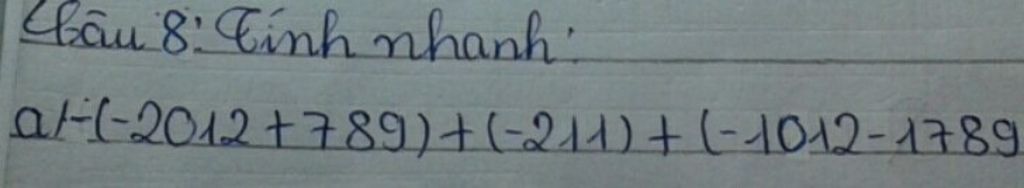 Câu 8: Tính nhanh:
a/-(-2012+789)+(-211)+(-1012-1789